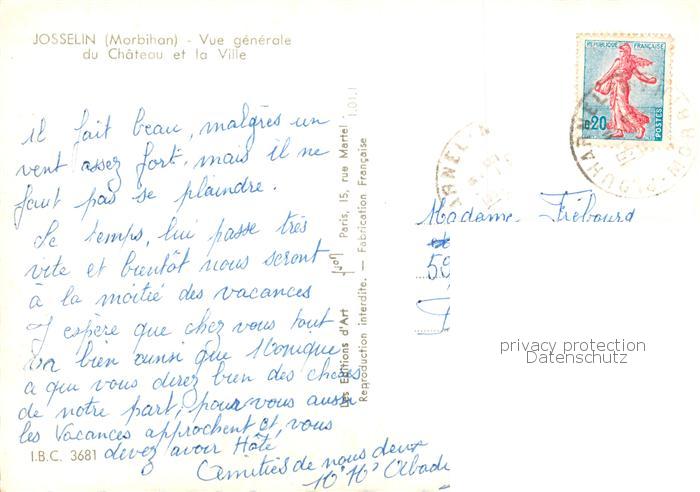 JOSSELIN (Morbihan) - Vue générale
du Château et la Ville
il fait beau, malgrès un
vent assez fort. mais il ne
faut pas se plaindre.
Le temps, lui passe très
vite et bientôt nous seront
à la moitié des vacances
J'espère que chez vous tout
va bien ainsi que Monique
a que vous direz bien des choses
de notre part, pour vous aussi
les vacances approchent et, vous
devez avoir Hâte
Amitiés de nous deux
Mr Mme Abadi
I.B.C. 3681
Les Editions d'Art Jack Paris, 15, rue Martel 1.01.1
Reproduction interdite. — Fabrication Française
REPUBLIQUE FRANÇAISE
0,20
POSTES
PLOUHARNEL
MORBIHAN
ARNEL
Madame Frébourd
59
privacy protection
Datenschutz